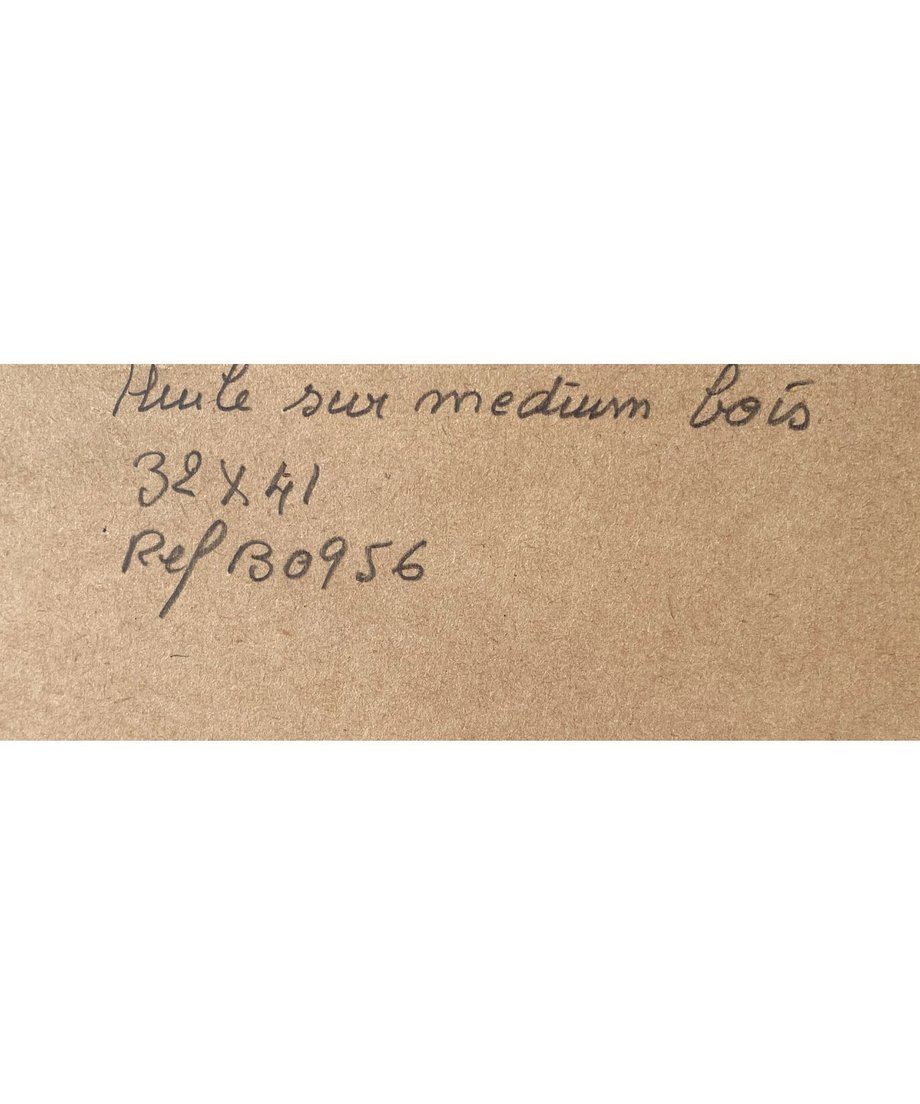 Huile sur medium bois
32 x 41
Ref B0956